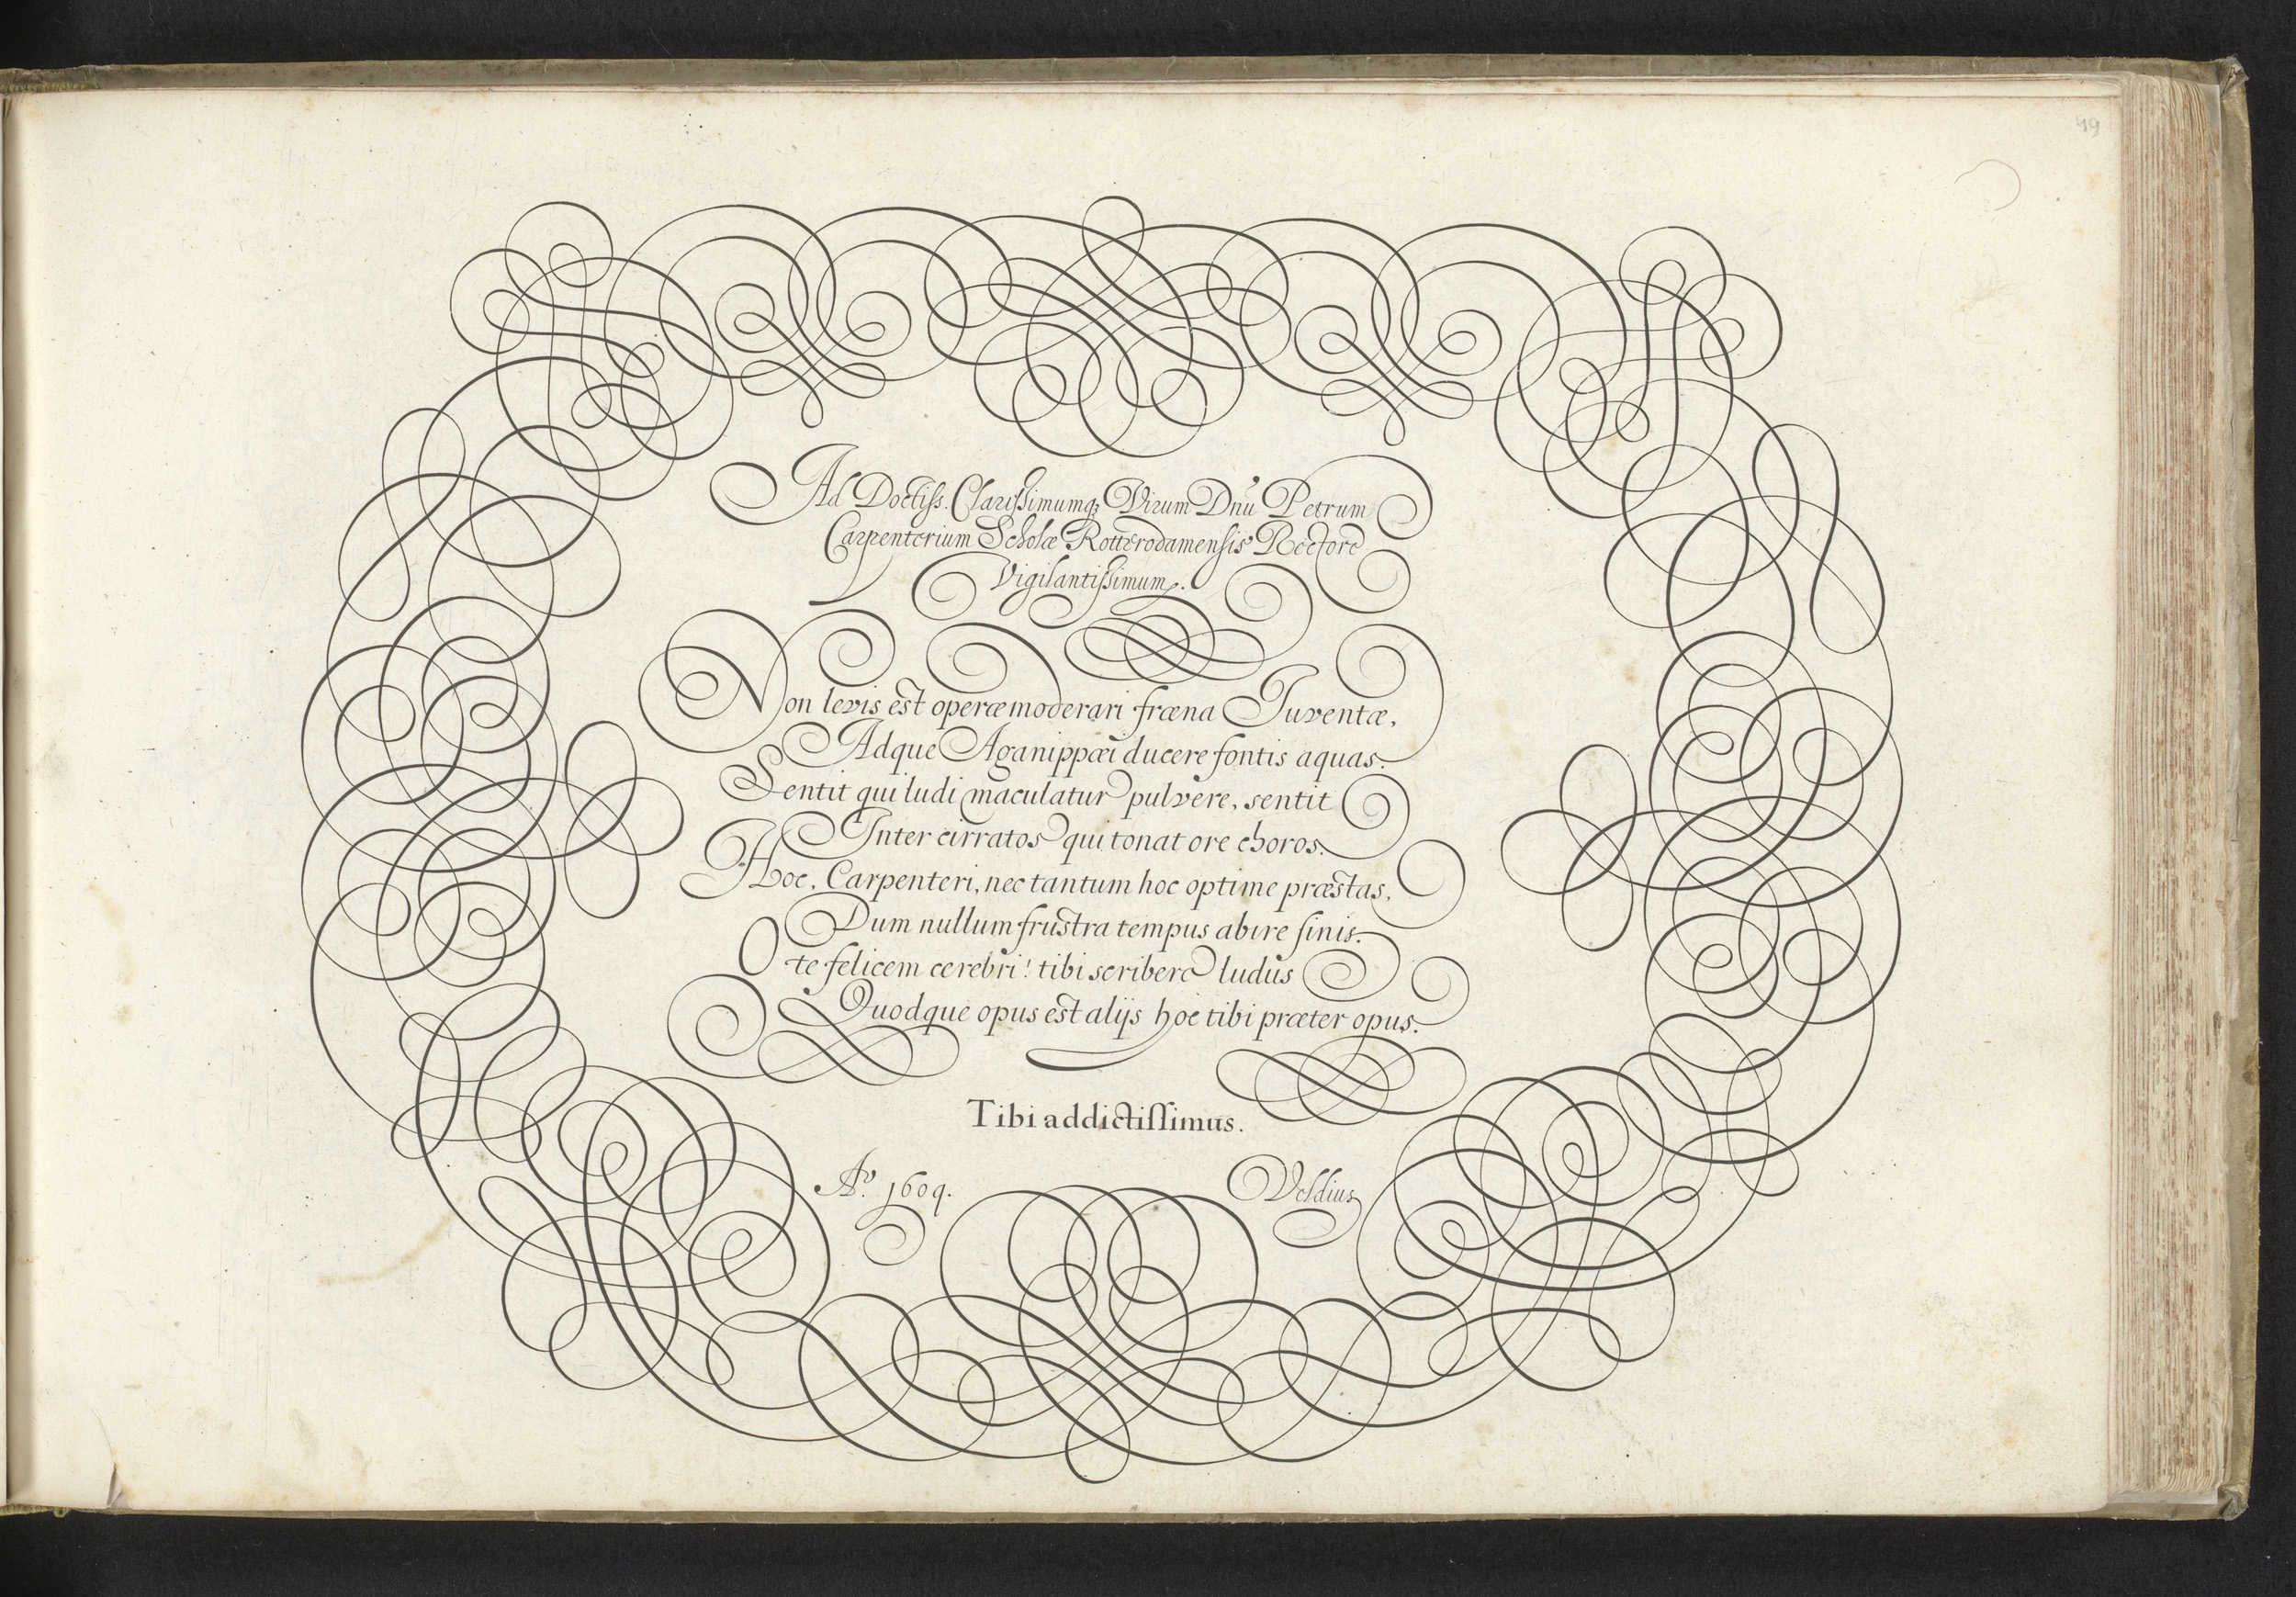 49
Ad Doctiss. Clarissimumq; Virum Dnū Petrum
Carpenterium Scholæ Rotterodamensis Rectore
Vigilantissimum.
Non levis est operæ moderari fræna Iuventæ,
Adque Aganippæi ducere fontis aquas.
Sentit qui ludi maculatur pulvere, sentit
Inter cirratos qui tonat ore choros.
Hoc, Carpenteri, nec tantum hoc optime præstas,
Dum nullum frustra tempus abire sinis.
O te felicem cerebri! tibi scribere ludus
Quodque opus est alijs hoc tibi præter opus.
Tibi addictissimus.
Aº. 1609. Veldius